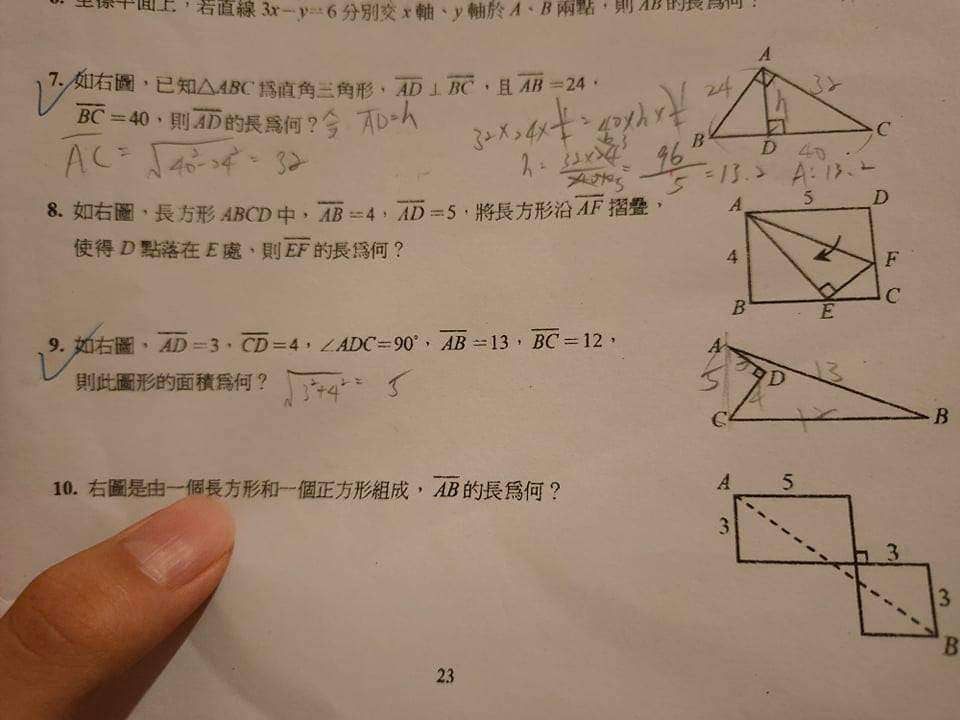 座標平面上，若直線 3x－y＝6 分別交 x 軸、y 軸於 A、B 兩點，則 AB 的長為何？
7. 如右圖，已知△ABC 為直角三角形，AD⊥BC，且 AB＝24，
BC＝40，則 AD 的長為何？ 令 AD=h
AC = √40²-24² = 32
32×24×1/2 = 40×h×1/2
h = = 96/5 = 13.2 A:13.2
A
24
32
h
B
D
C
40
8. 如右圖，長方形 ABCD 中，AB＝4，AD＝5，將長方形沿 AF 摺疊，
使得 D 點落在 E 處，則 EF 的長為何？
A
5
D
4
F
B
E
C
9. 如右圖，AD＝3，CD＝4，∠ADC＝90°，AB＝13，BC＝12，
則此圖形的面積為何？ √3²+4² = 5
A
5
3
D
4
13
C
12
B
10. 右圖是由一個長方形和一個正方形組成，AB 的長為何？
A
5
3
3
3
B
23